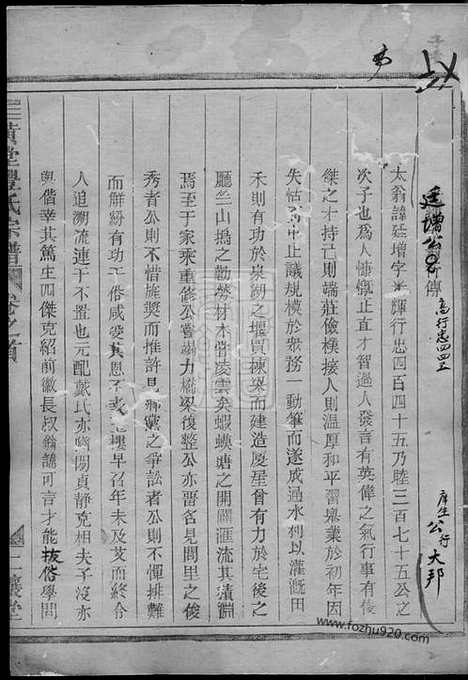 廷增公行傳 高行忠四四五
庠生 公行大邦
太翁諱廷增字光輝行忠四百四十五乃睦三百七十五公之
次子也為人慷慨正直才智過人發言有英偉之氣行事有俊
傑之才持己則端莊儉樸接人則溫厚和平習舉業於初年因
失怙而中止議規模於眾務一動筆而遂成通水利以灌溉田
禾則有功於泉朗之堰買棟梁而建造廈屋曾有力於宅後之
廳竺山撝之勸勞材木皆凌雲矣蝦蟆塘之開闢滙流其積淵
焉至于家乘重修公嘗竭力橋梁復整公亦留名見閭里之俊
秀者公則不惜旌奬而惟許見鄉黨之爭訟者公則不憚排難
而解紛有功于俗咸愛其恩子孝樓早召年未及艾而終令
人追溯流連于不置也元配戴氏亦嫺閫貞靜克相夫子沒亦
與偕幸其篤生四傑克紹前徽長叔翁諱可言才能拔俗學問
黃堂豐氏宗譜 卷之首
讓堂
www.fozhu920.com